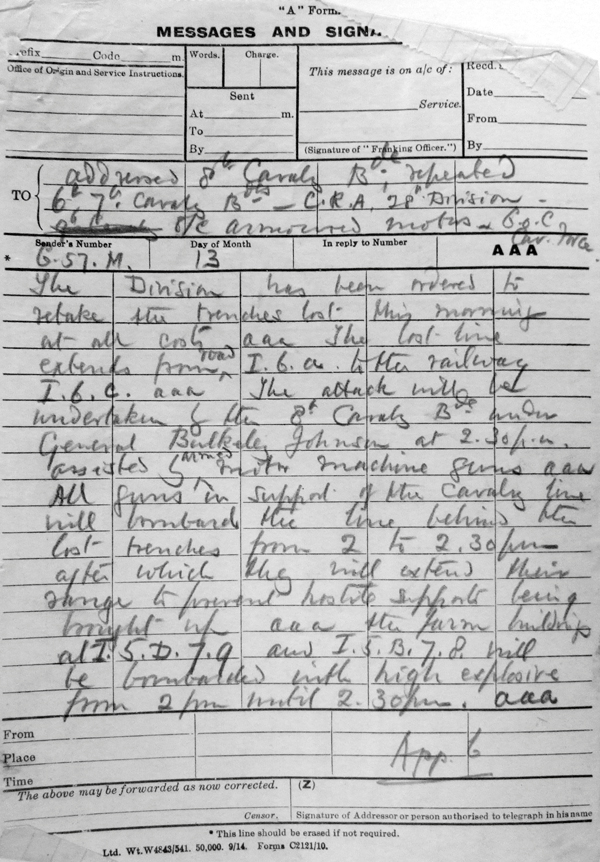 "A" Form.
MESSAGES AND SIGNA
refix Code m.
Office of Origin and Service Instructions.
Words. Charge.
Sent
At m.
To
By
This message is on a/c of:
Service.
(Signature of "Franking Officer.")
Recd.
Date
From
By
TO
addressed 8th Cavalry Bde. repeated
6th 7th Cavalry Bdes – C.R.A. 28th Division –
O/C armoured motors & G.O.C
Cav. Force
* Sender's Number Day of Month In reply to Number AAA
G.57.M. 13
The Division has been ordered to
retake the trenches lost this morning
at all costs aaa The lost line
extends from road I.6.a. to the railway
I.6.C. aaa The attack will be
undertaken by the 8th Cavalry Bde under
General Bulkeley Johnson at 2.30 p.m.
assisted by armed motor machine guns aaa
All guns in support of the Cavalry line
will bombard the line behind the
lost trenches from 2 to 2.30 pm
after which they will extend their
range to prevent hostile supports being
brought up aaa the farm buildings
at I.5.D.7.9 and I.5.B.7.8. will
be bombarded with high explosive
from 2 pm until 2.30 pm. aaa
From
Place
Time
App. 6
The above may be forwarded as now corrected. (Z)
Censor. Signature of Addressor or person authorised to telegraph in his name
* This line should be erased if not required.
Ltd. Wt.W4843/541. 50,000. 9/14. Forms C2121/10.